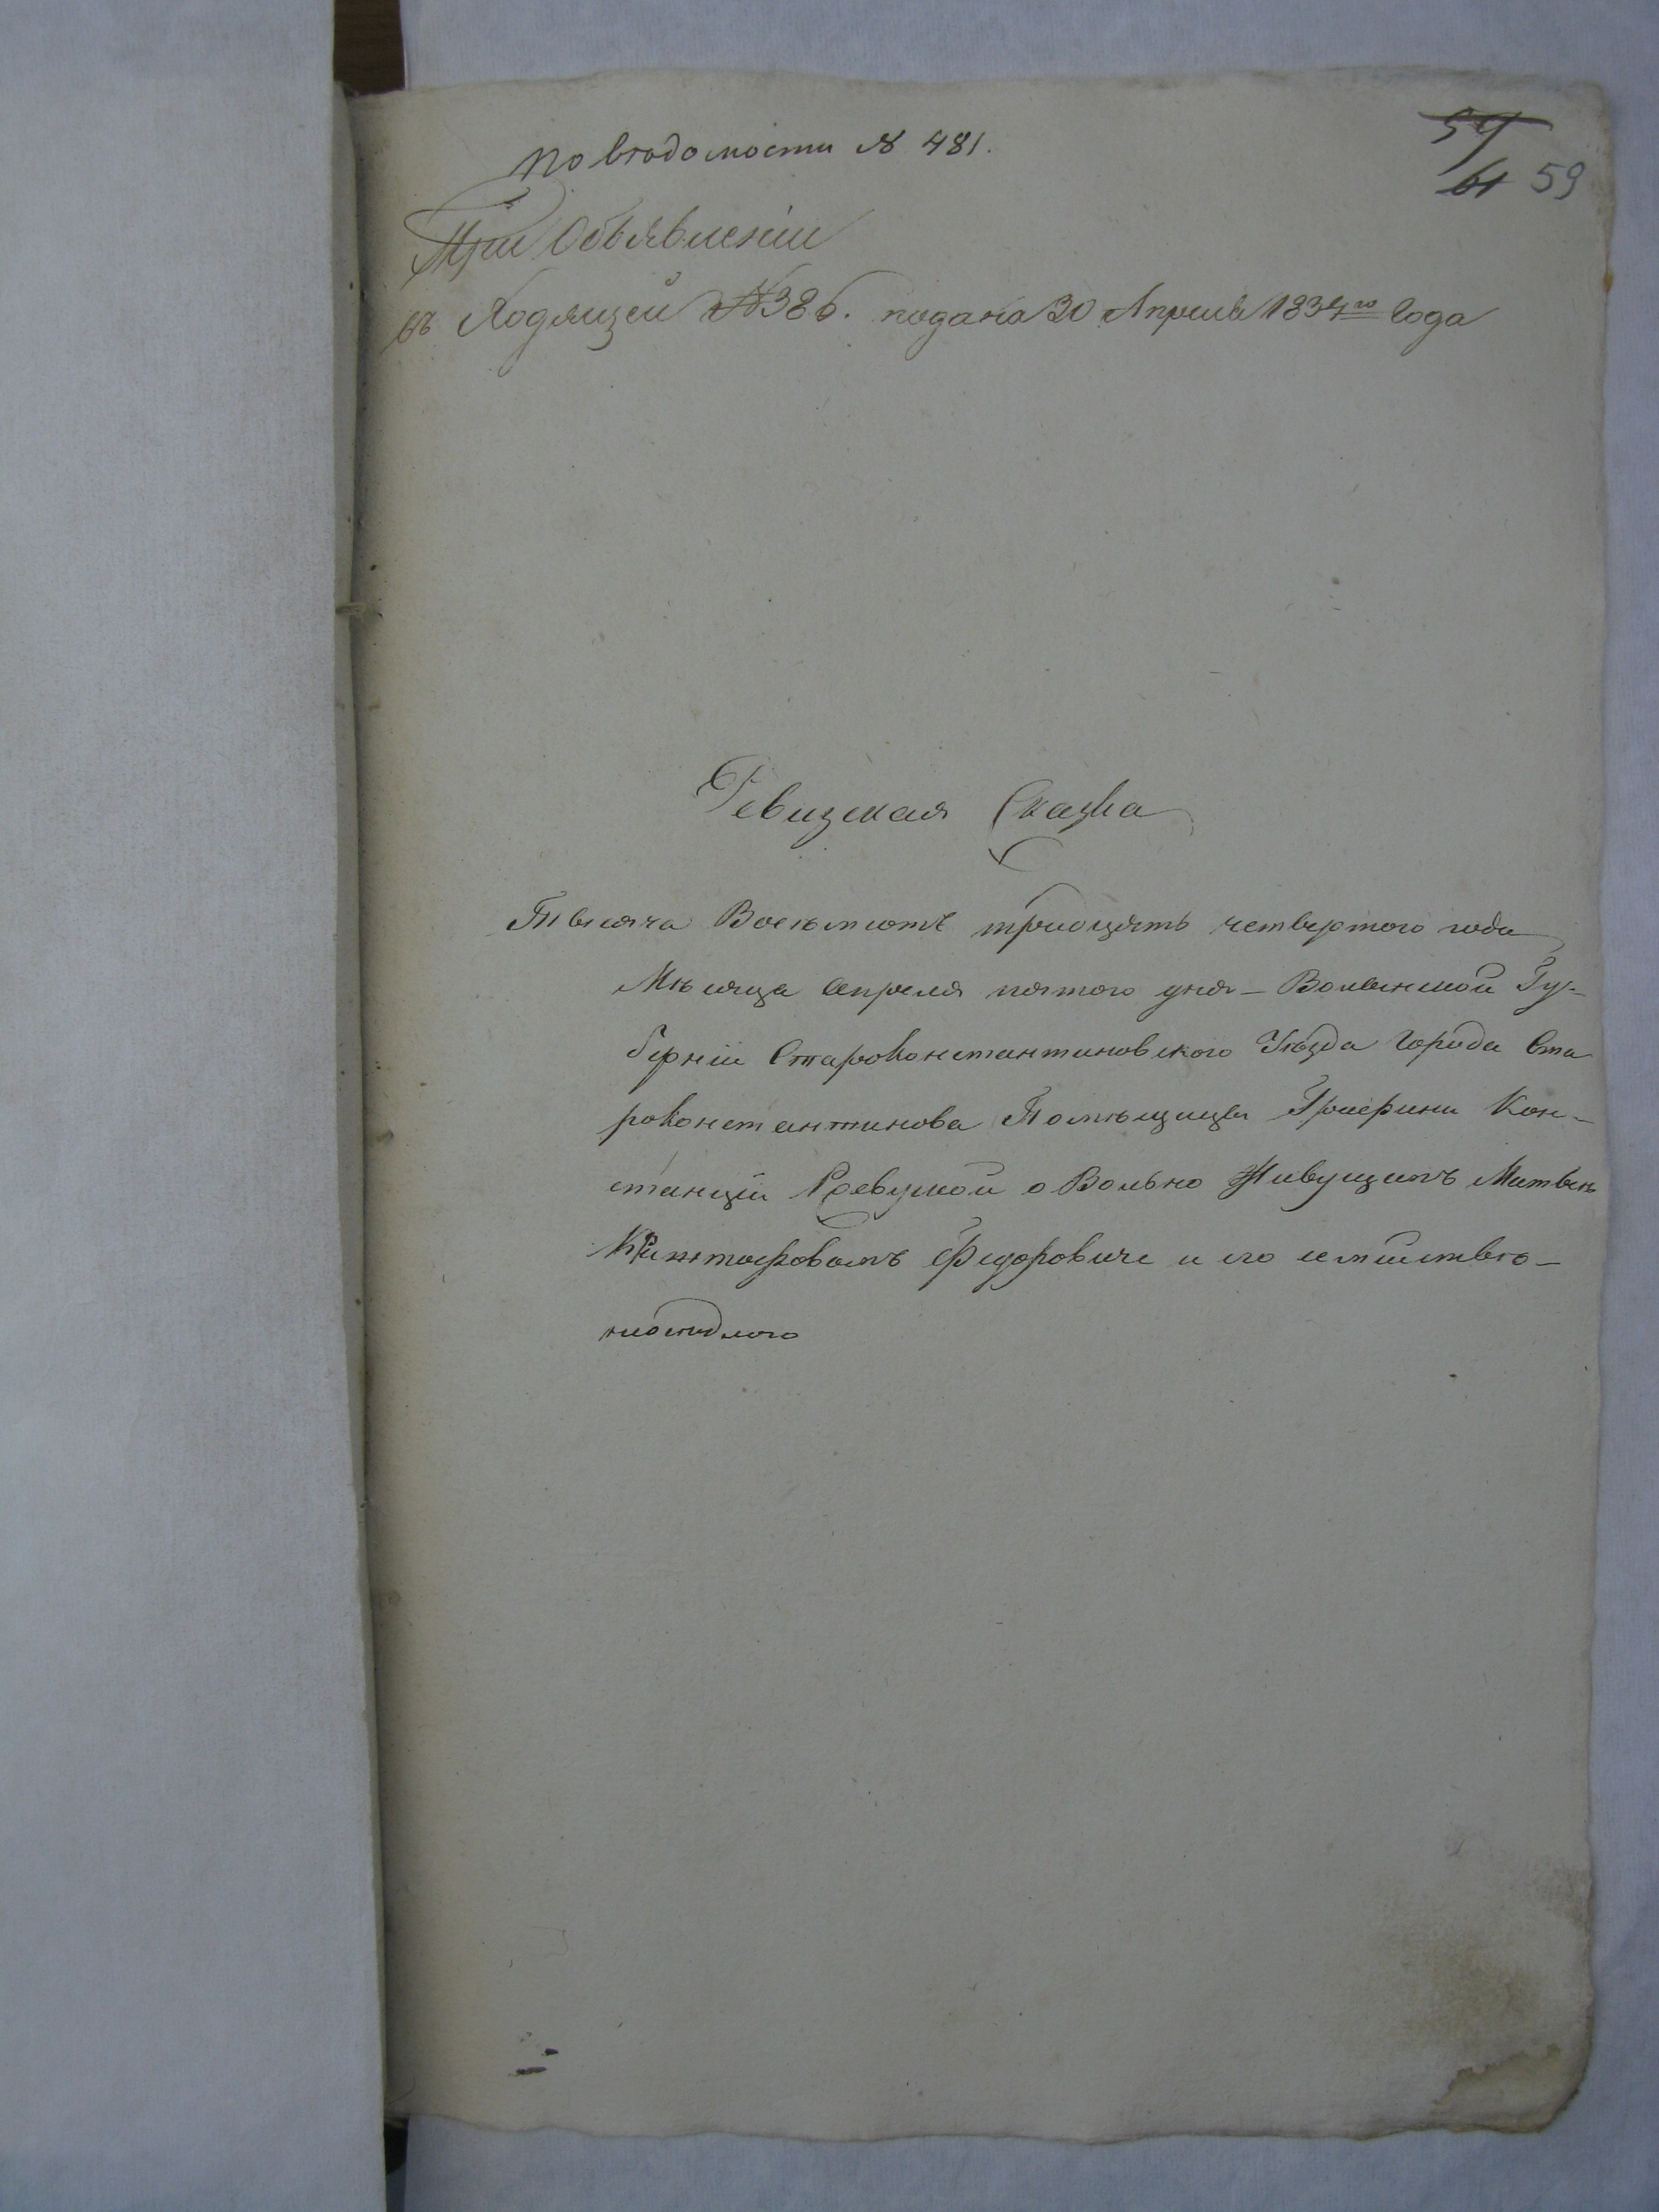 по ведомости № 481.
59
61 59
При Объявленіи
въ Ходящей №386. подана 30 Апреля 1834го Года
Ревизская Сказка
Тысяча Восемьсотъ тридцать четвертого года
Месяца апреля пятого дня – Волынской Гу-
берніи Староконстантиновского Уѣзда Города Ста
роконстантинова Помѣщицы Графини Кон-
станціи Ревуской о Вольно Живущемъ
Федоровиче и его семействе –